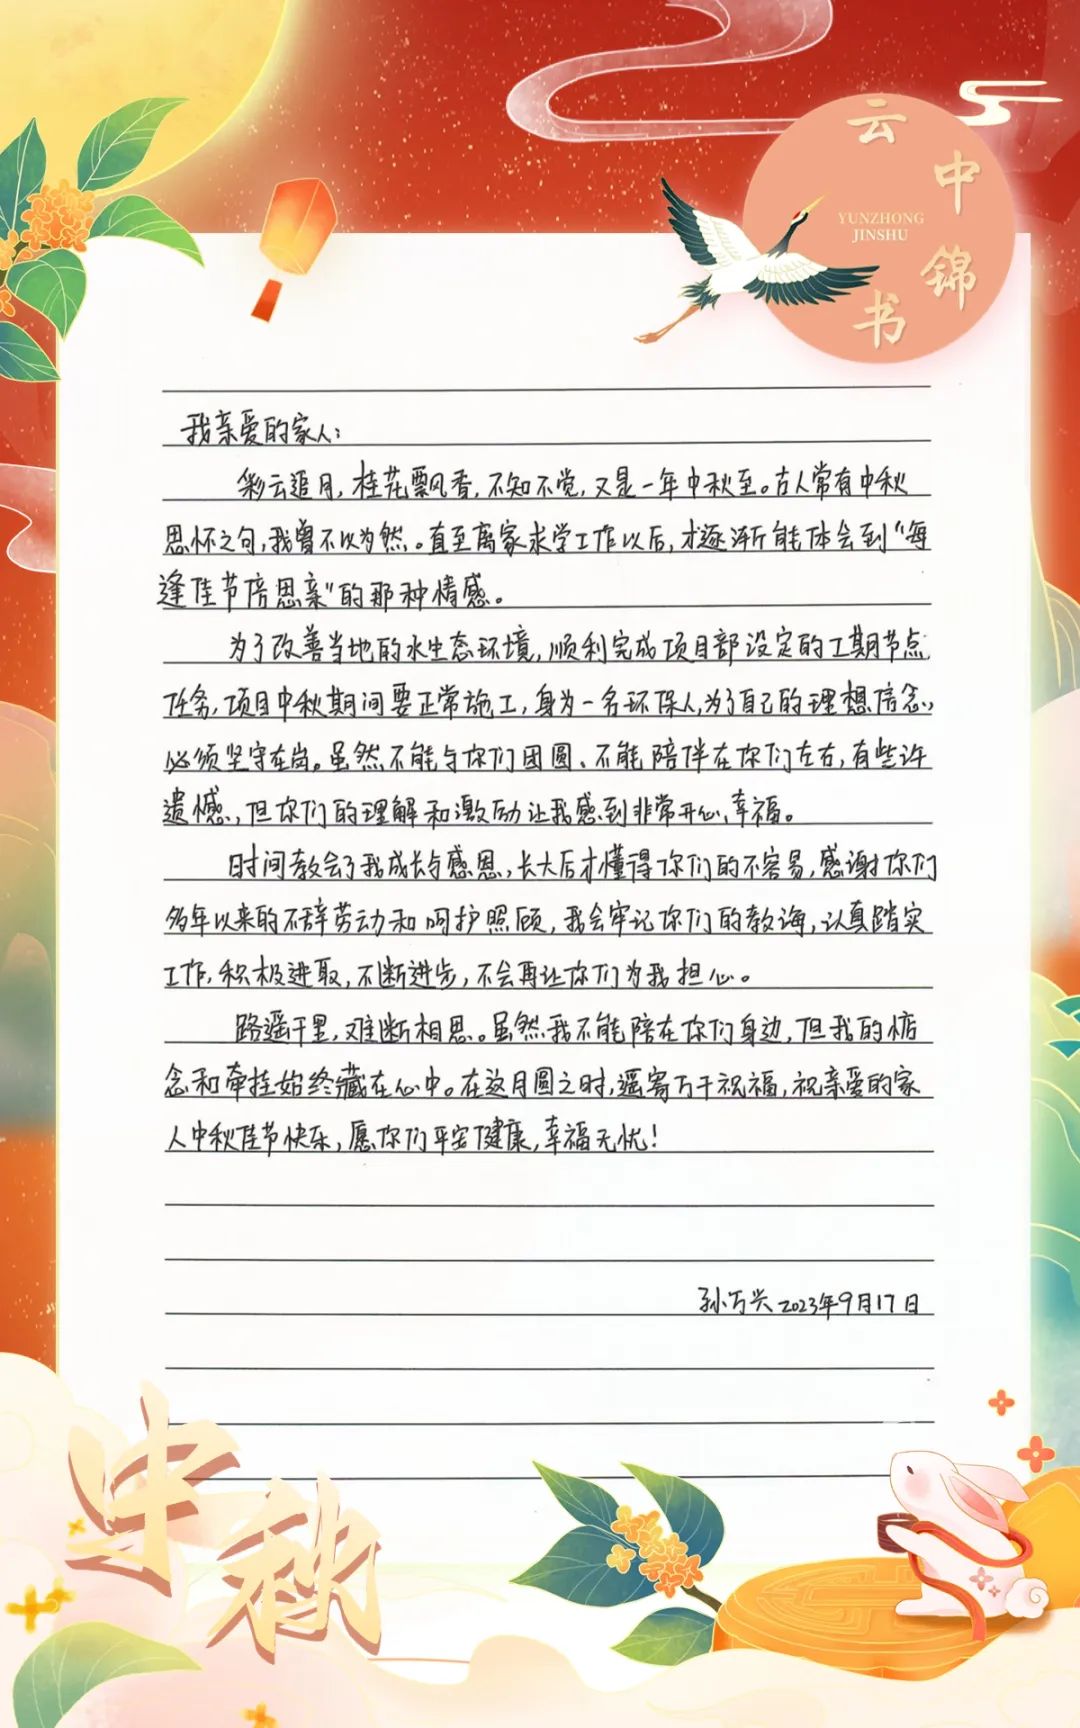 云中锦书
YUNZHONG
JINSHU
我亲爱的家人:
彩云追月,桂花飘香,不知不觉,又是一年中秋至。古人常有中秋
思怀之句,我曾不以为然。直至离家求学工作以后,才逐渐能体会到“每
逢佳节倍思亲”的那种情感。
为了改善当地的水生态环境,顺利完成项目部设定的工期节点
任务,项目中秋期间要正常施工,身为一名环保人,为了自己的理想信念,
必须坚守在岗。虽然不能与你们团圆、不能陪伴在你们左右,有些许
遗憾,但你们的理解和激励让我感到非常开心、幸福。
时间教会了我成长与感恩,长大后才懂得你们的不容易,感谢你们
多年以来的不辞劳动和呵护照顾,我会牢记你们的教诲,认真踏实
工作,积极进取,不断进步,不会再让你们为我担心。
路遥千里,难断相思。虽然我不能陪在你们身边,但我的惦
念和牵挂始终藏在心中。在这月圆之时,遥寄万千祝福,祝亲爱的家
人中秋佳节快乐,愿你们平安健康,幸福无忧!
孙万兴 2023年9月17日
中秋